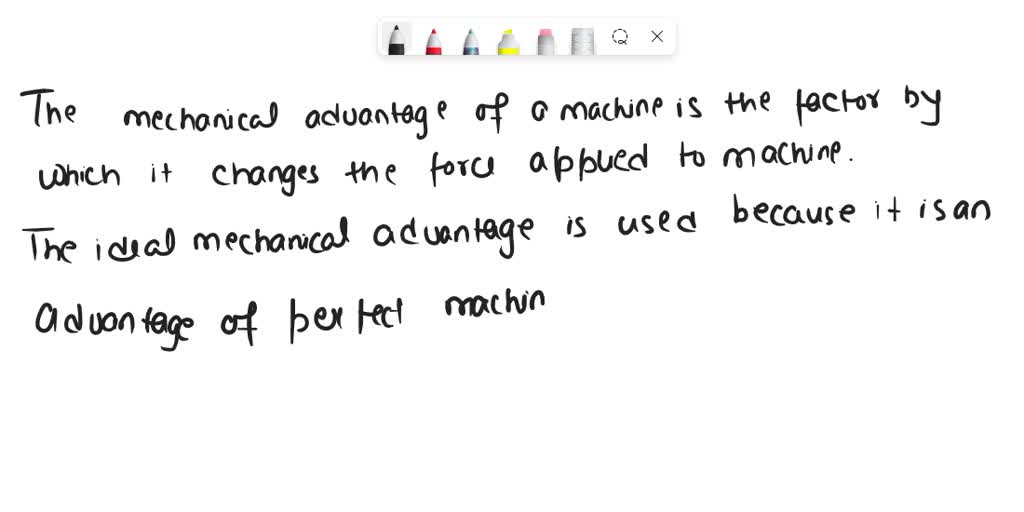 The mechanical advantage of a machine is the factor by
which it changes the force applied to machine.
The ideal mechanical advantage is used because it is an
advantage of perfect machin